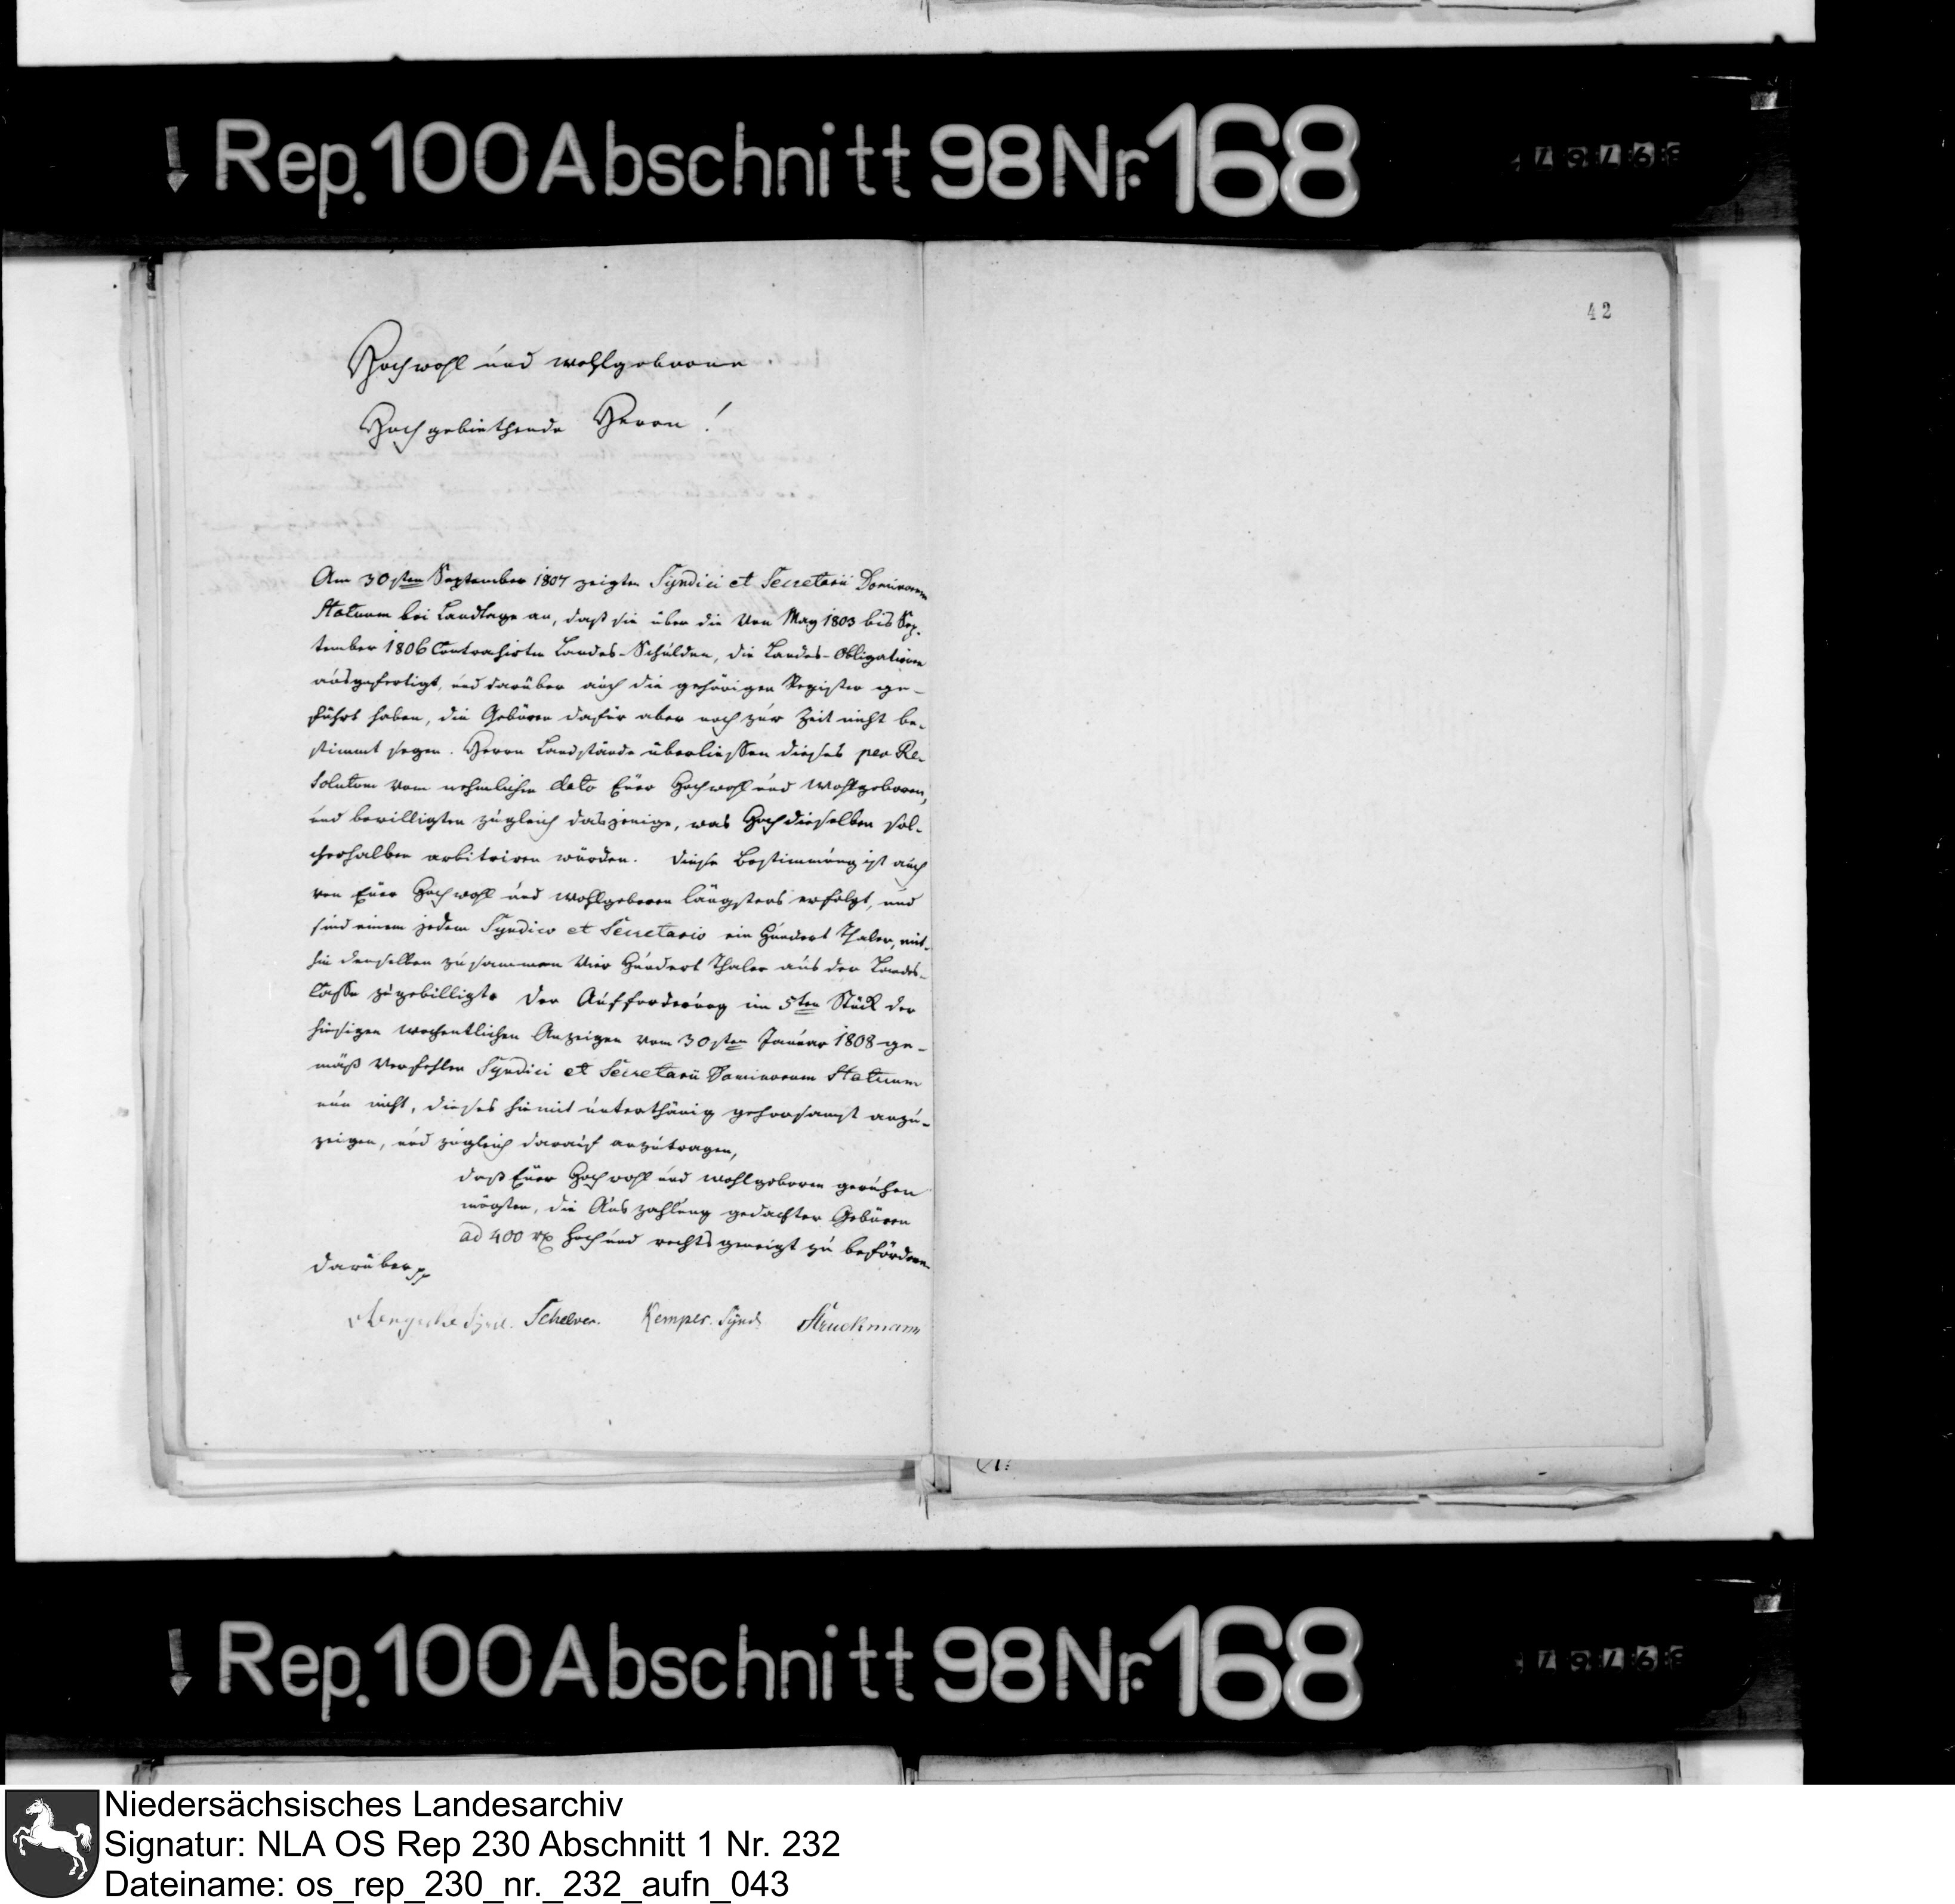 Rep. 100 Abschnitt 98 Nr. 168
42
Hochwohl und wohlgeborne
Hochgebiethende Herrn!
Am 30sten September 1807 zeigten Syndici et Secretarii Dominorum
Statuum bei Landtage an, daß sie über die von May 1803 bis Sep-
tember 1806 Contrahirten Landes-Schulden, die Landes-Obligationen
ausgefertigt, und darüber auch die gehörigen Register ge-
führt haben, die Gebüren dafür aber noch zur Zeit nicht be-
stimmt seyen. Herrn Landstände überliessen dieses per Re-
solutum vom nehmlichen dato Euer Hochwohl und Wohlgeboren,
und bewilligten zugleich dasjenige, was Hochdieselben sol-
cherhalben arbitriren würden. Diese Bestimmung ist auch
von Euer Hochwohl und Wohlgeboren längstens erfolgt, und
sind einem jedem Syndico et Secretario ein Hundert Thaler, mit-
hin denselben zusammen Vier Hundert Thaler aus der Landes-
Casse zugebilligt. Der Aufforderung im 5ten Stück der
hiesigen wochentlichen Anzeigen vom 30sten Januar 1808 ge-
mäß Verfehlen Syndici et Secretarii Dominorum Statuum
nun nicht, dieses hiemit unterthänig gehorsamst anzu-
zeigen, und zugleich darauf anzutragen,
daß Euer Hochwohl und wohlgeboren geruhen
mögten, die Auszahlung gedachter Gebüren
ad 400 rx hoch und rechtsgeneigt zu befördern.
Darüber pp
Synd. Schelver. Kemper. Synd. Struckmann
Rep. 100 Abschnitt 98 Nr. 168
Niedersächsisches Landesarchiv
Signatur: NLA OS Rep 230 Abschnitt 1 Nr. 232
Dateiname: os_rep_230_nr._232_aufn_043